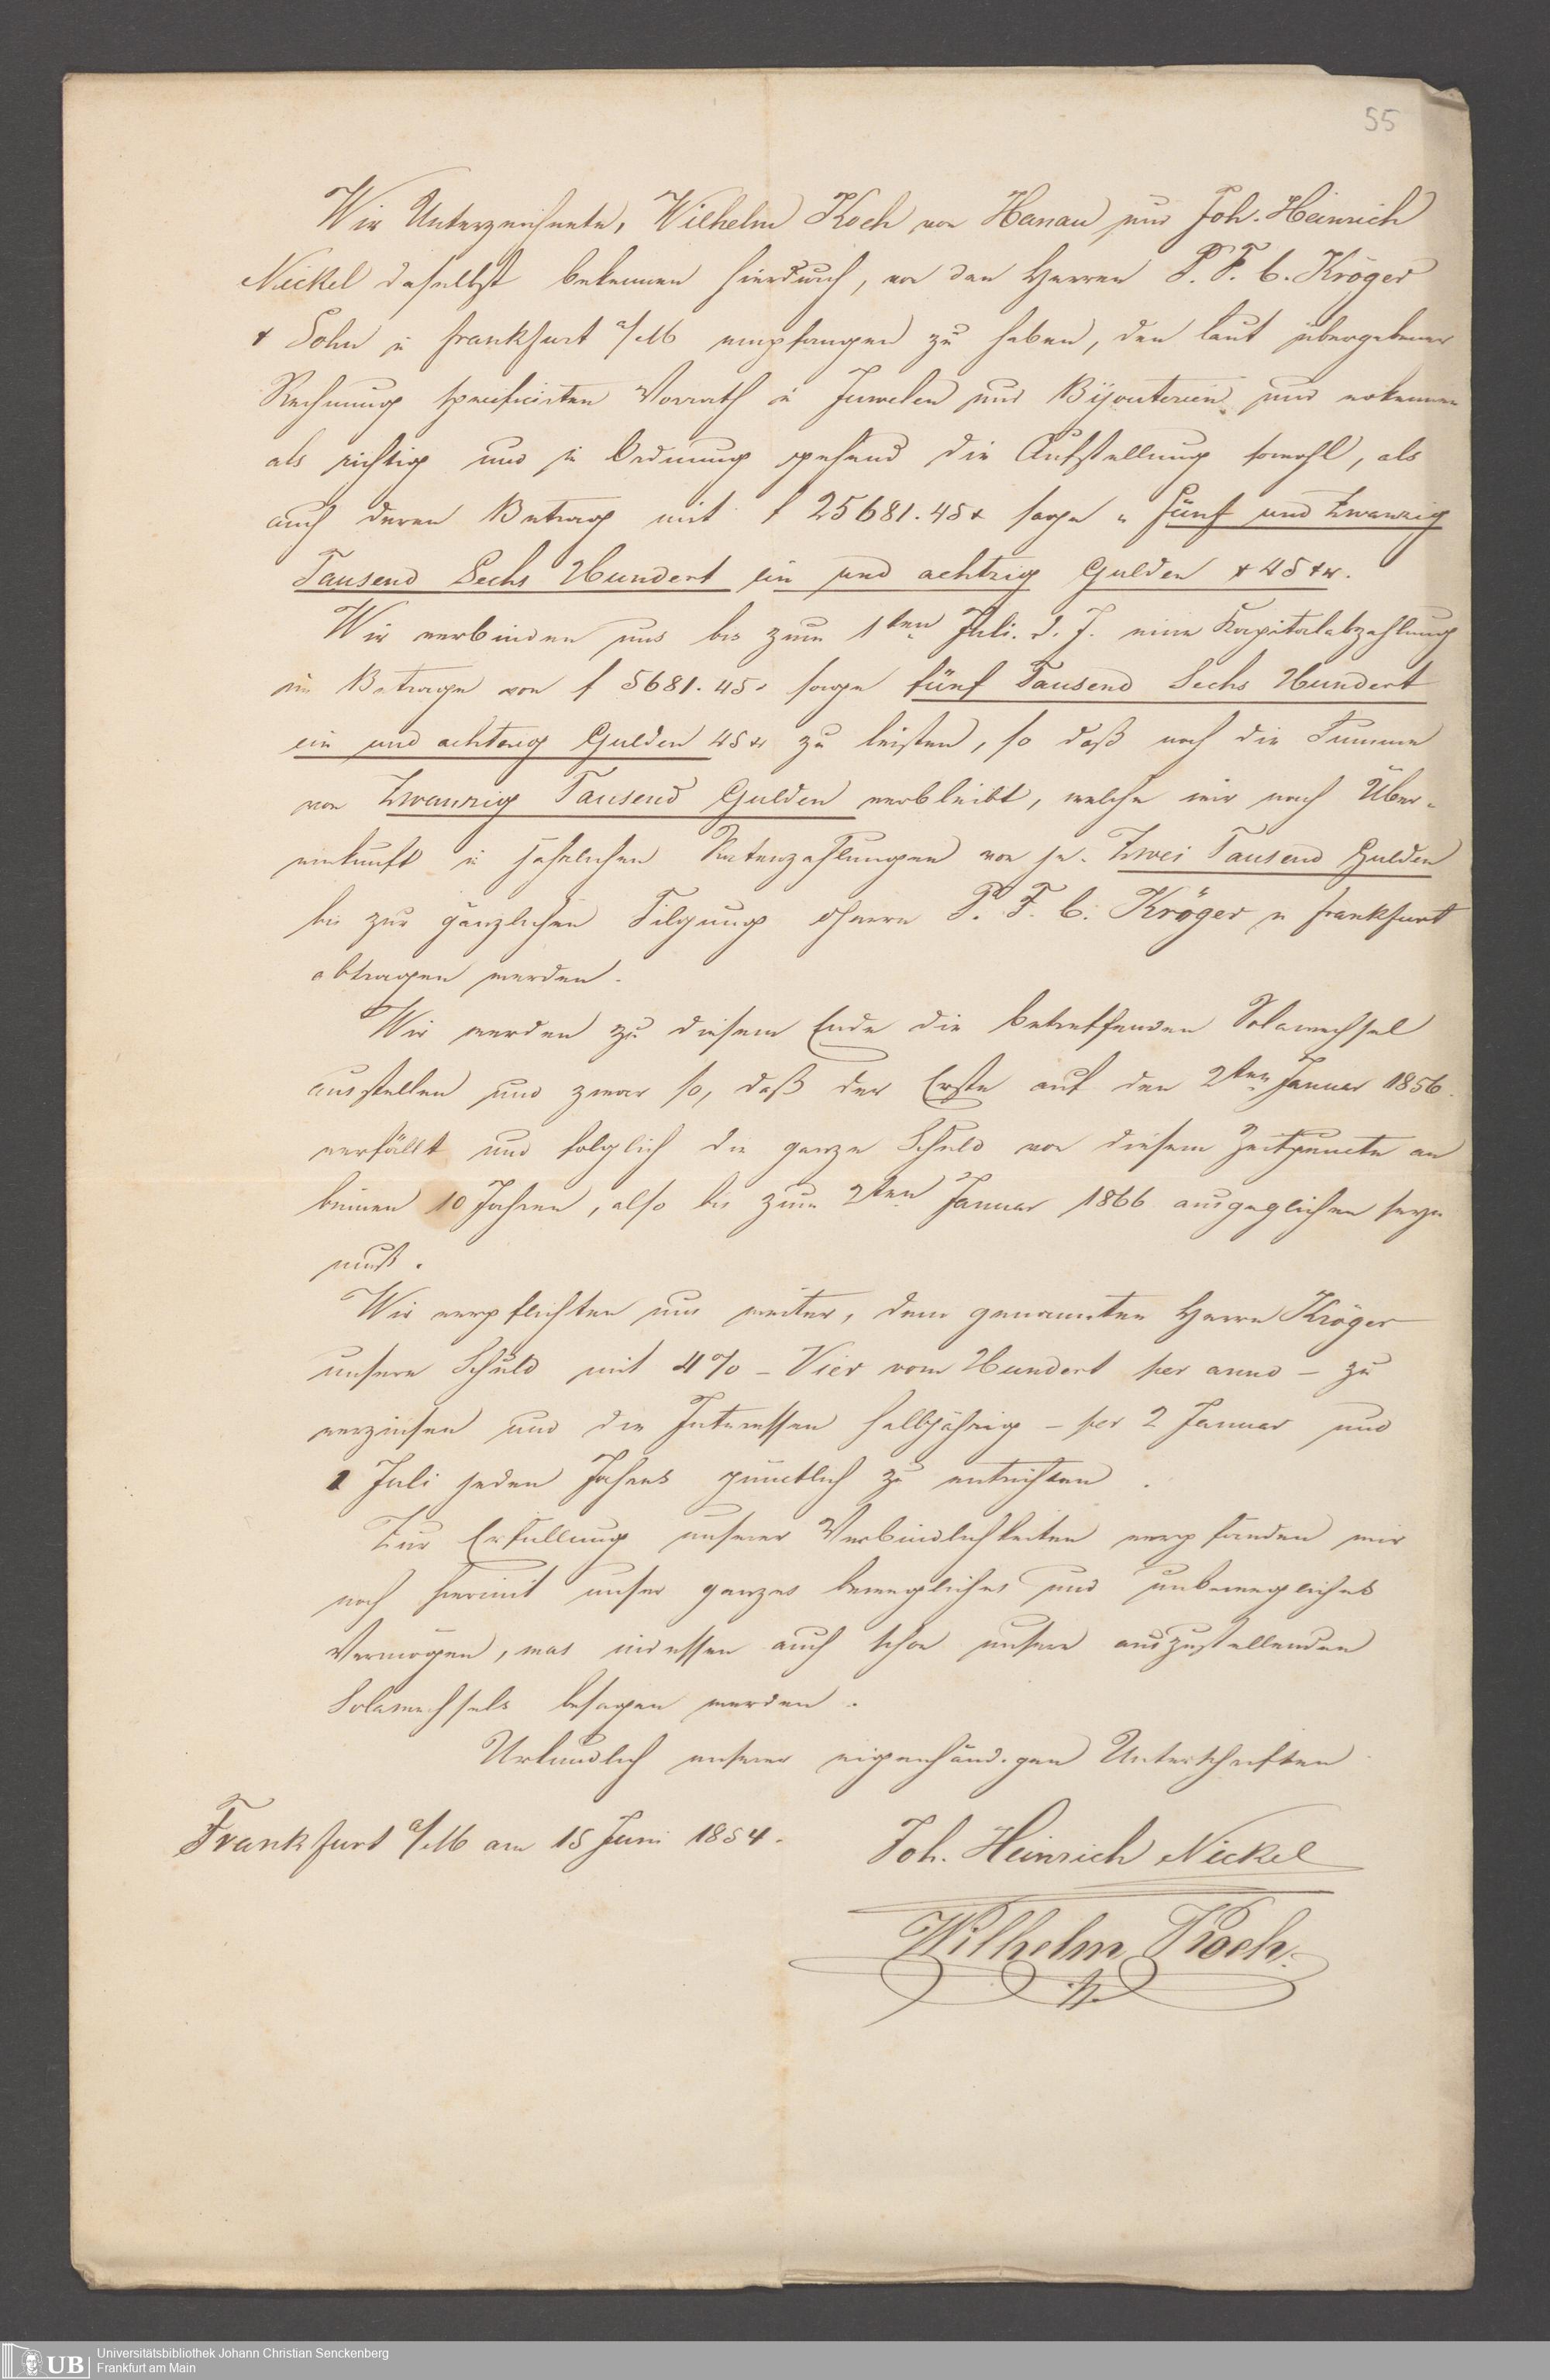 55
Wir Unterzeichnete, Wilhelm Koch von Hanau und Joh. Heinrich
Nickel daselbst bekennen hierdurch, von den Herren P. F. C. Kröger
& Sohn in Frankfurt a/M empfangen zu haben, den laut übergebener
Rechnung specificirten Vorrath in Juwelen und Bijouterien und erkennen
als richtig und in Ordnung gehend die Aufstellung sowohl, als
auch deren Betrag mit f 25681.45x sage " Fünf und Zwanzig
Tausend Sechs Hundert ein und achtzig Gulden & 45 xr.
Wir verbinden uns bis zum 1ten Juli d. J. eine Kapitalabzahlung
im Betrage von f 5681.45x sage fünf Tausend Sechs Hundert
ein und achtzig Gulden 45 xr zu leisten, so daß noch die Summe
von Zwanzig Tausend Gulden verbleibt, welche wir nach Über-
einkunft in jährlichen Ratenzahlungen von je Zwei Tausend Gulden
bis zur gänzlichen Tilgung Herrn P. F. C. Kröger in Frankfurt
abtragen werden.
Wir werden zu diesem Ende die betreffenden Solawechsel
ausstellen und zwar so, daß der Erste auf den 2ten Januar 1856
verfällt und folglich die ganze Schuld von diesem Zeitpuncte an
binnen 10 Jahren, also bis zum 2ten Januar 1866 ausgeglichen seyn
muß.
Wir verpflichten uns weiter, dem genannten Herrn Kröger
unsere Schuld mit 4% – Vier vom Hundert per anno – zu
verzinsen und die Interessen halbjährig – per 2 Januar und
1 Juli jeden Jahres pünctlich zu entrichten.
Zur Erfüllung unserer Verbindlichkeiten verpfänden wir
noch hiermit unser ganzes bewegliches und unbewegliches
Vermögen, was indessen auch schon unsere auszustellenden
Solawechsels besagen werden.
Urkundlich unserer eigenhändigen Unterschriften
Frankfurt a/M am 15 Juni 1854.
Joh. Heinrich Nickel
Wilhelm Koch.
UB
Universitätsbibliothek Johann Christian Senckenberg
Frankfurt am Main